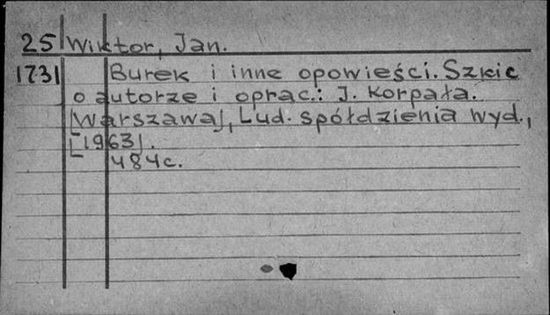 25 Wiktor, Jan.
1731 Burek i inne opowieści. Szkic
o autorze i oprac.: J. Korpała.
[Warszawa], Lud. spółdzienia wyd.,
[1963].
484c.